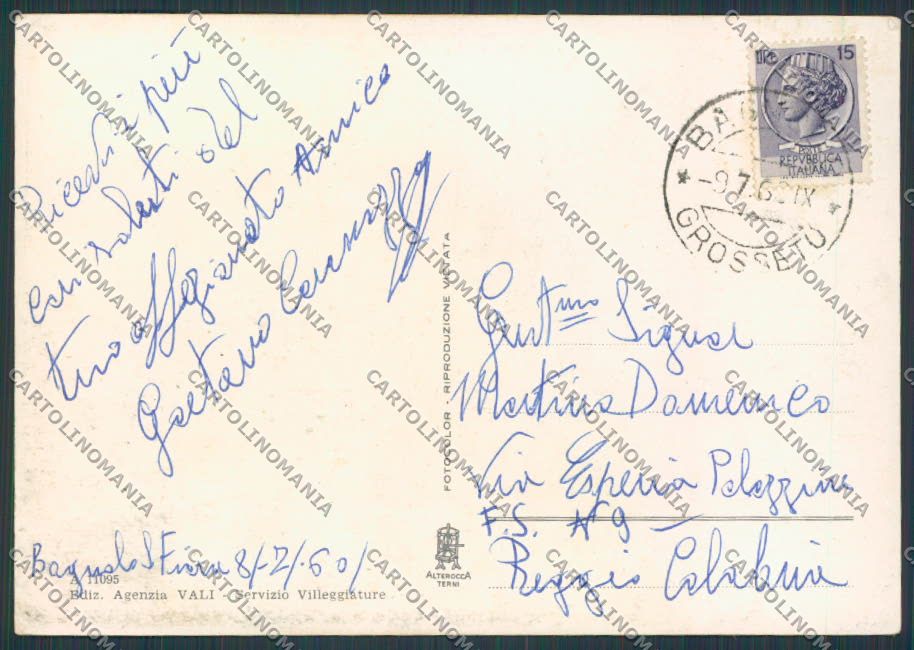 Ricevi i più
cari saluti dal
tuo affezionato Amico
Gaetano
Bagnolo S. Fiora 8/-7/-60/
A 11095
Ediz. Agenzia VALI - Servizio Villeggiature
FOTOCOLOR - RIPRODUZIONE VIETATA
ALTEROCCA
TERNI
LIRE 15
REPVBBLICA
ITALIANA
BAGNOLO
-9.7.60 IX
GROSSETO
Gent.mo Signor
Martino Domenico
Via Esperia Palazzine
F.S. N 9
Reggio Calabria
CARTOLINOMANIA